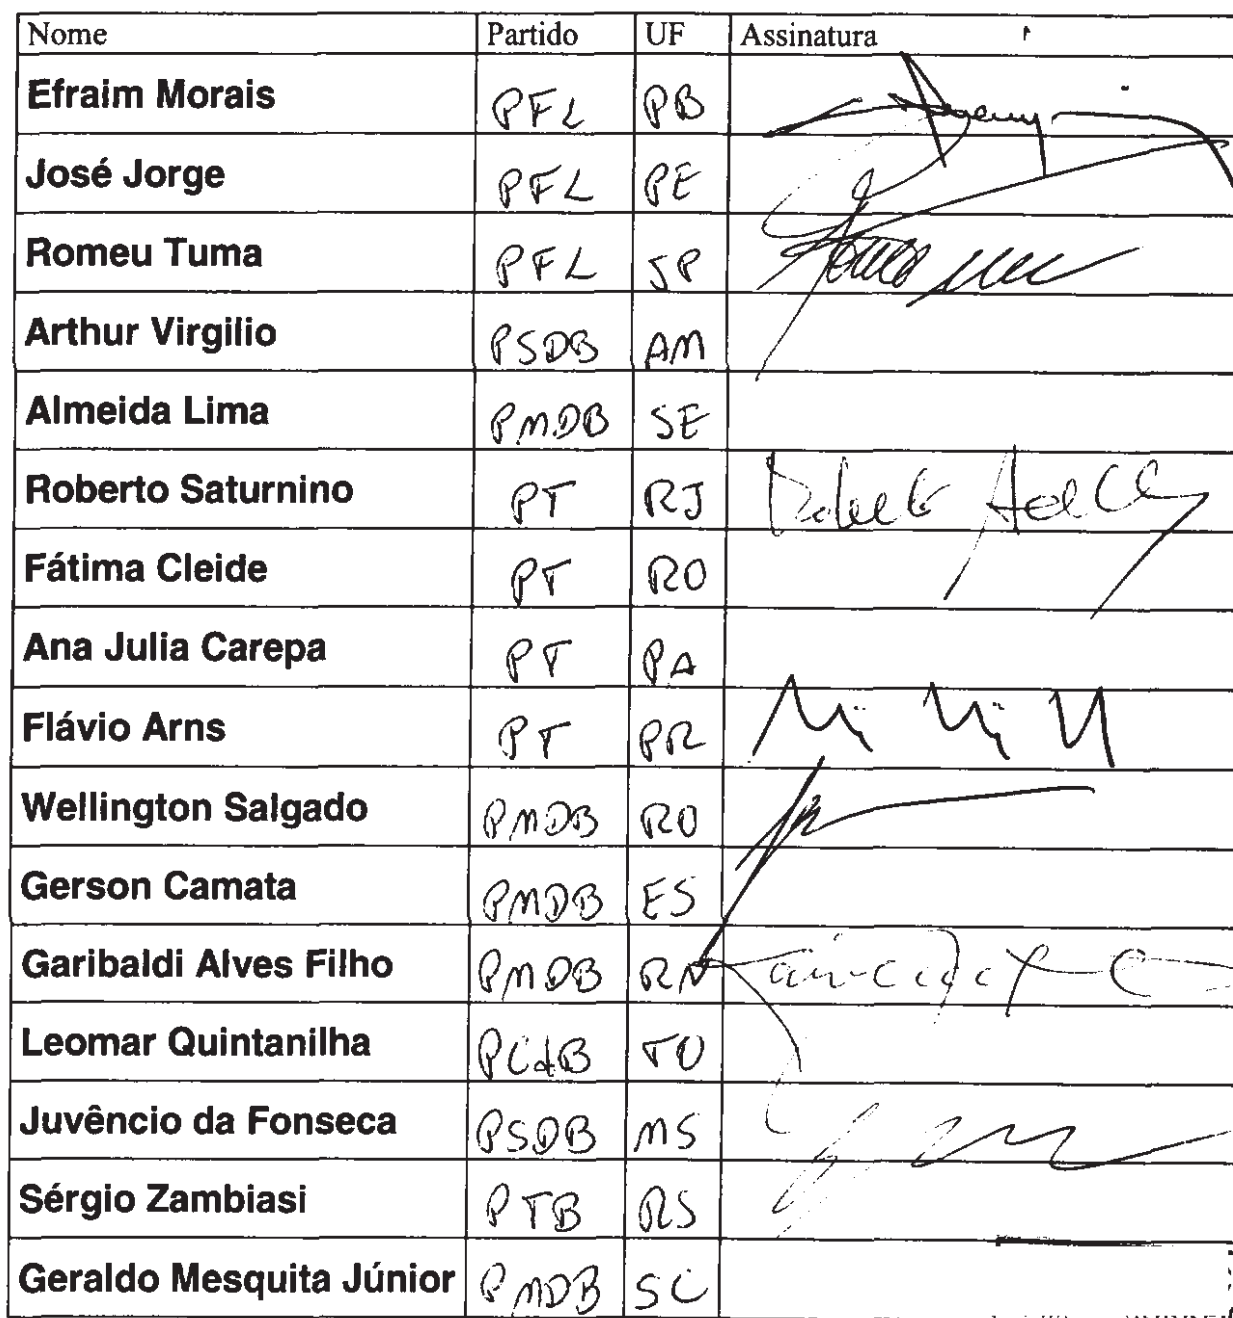 Nome Partido UF Assinatura
Efraim Morais PFL PB
José Jorge PFL PE
Romeu Tuma PFL SP
Arthur Virgilio PSDB AM
Almeida Lima PMDB SE
Roberto Saturnino PT RJ
Fátima Cleide PT RO
Ana Julia Carepa PT PA
Flávio Arns PT PR
Wellington Salgado PMDB RO
Gerson Camata PMDB ES
Garibaldi Alves Filho PMDB RN
Leomar Quintanilha PCdB TO
Juvêncio da Fonseca PSDB MS
Sérgio Zambiasi PTB RS
Geraldo Mesquita Júnior PMDB SC